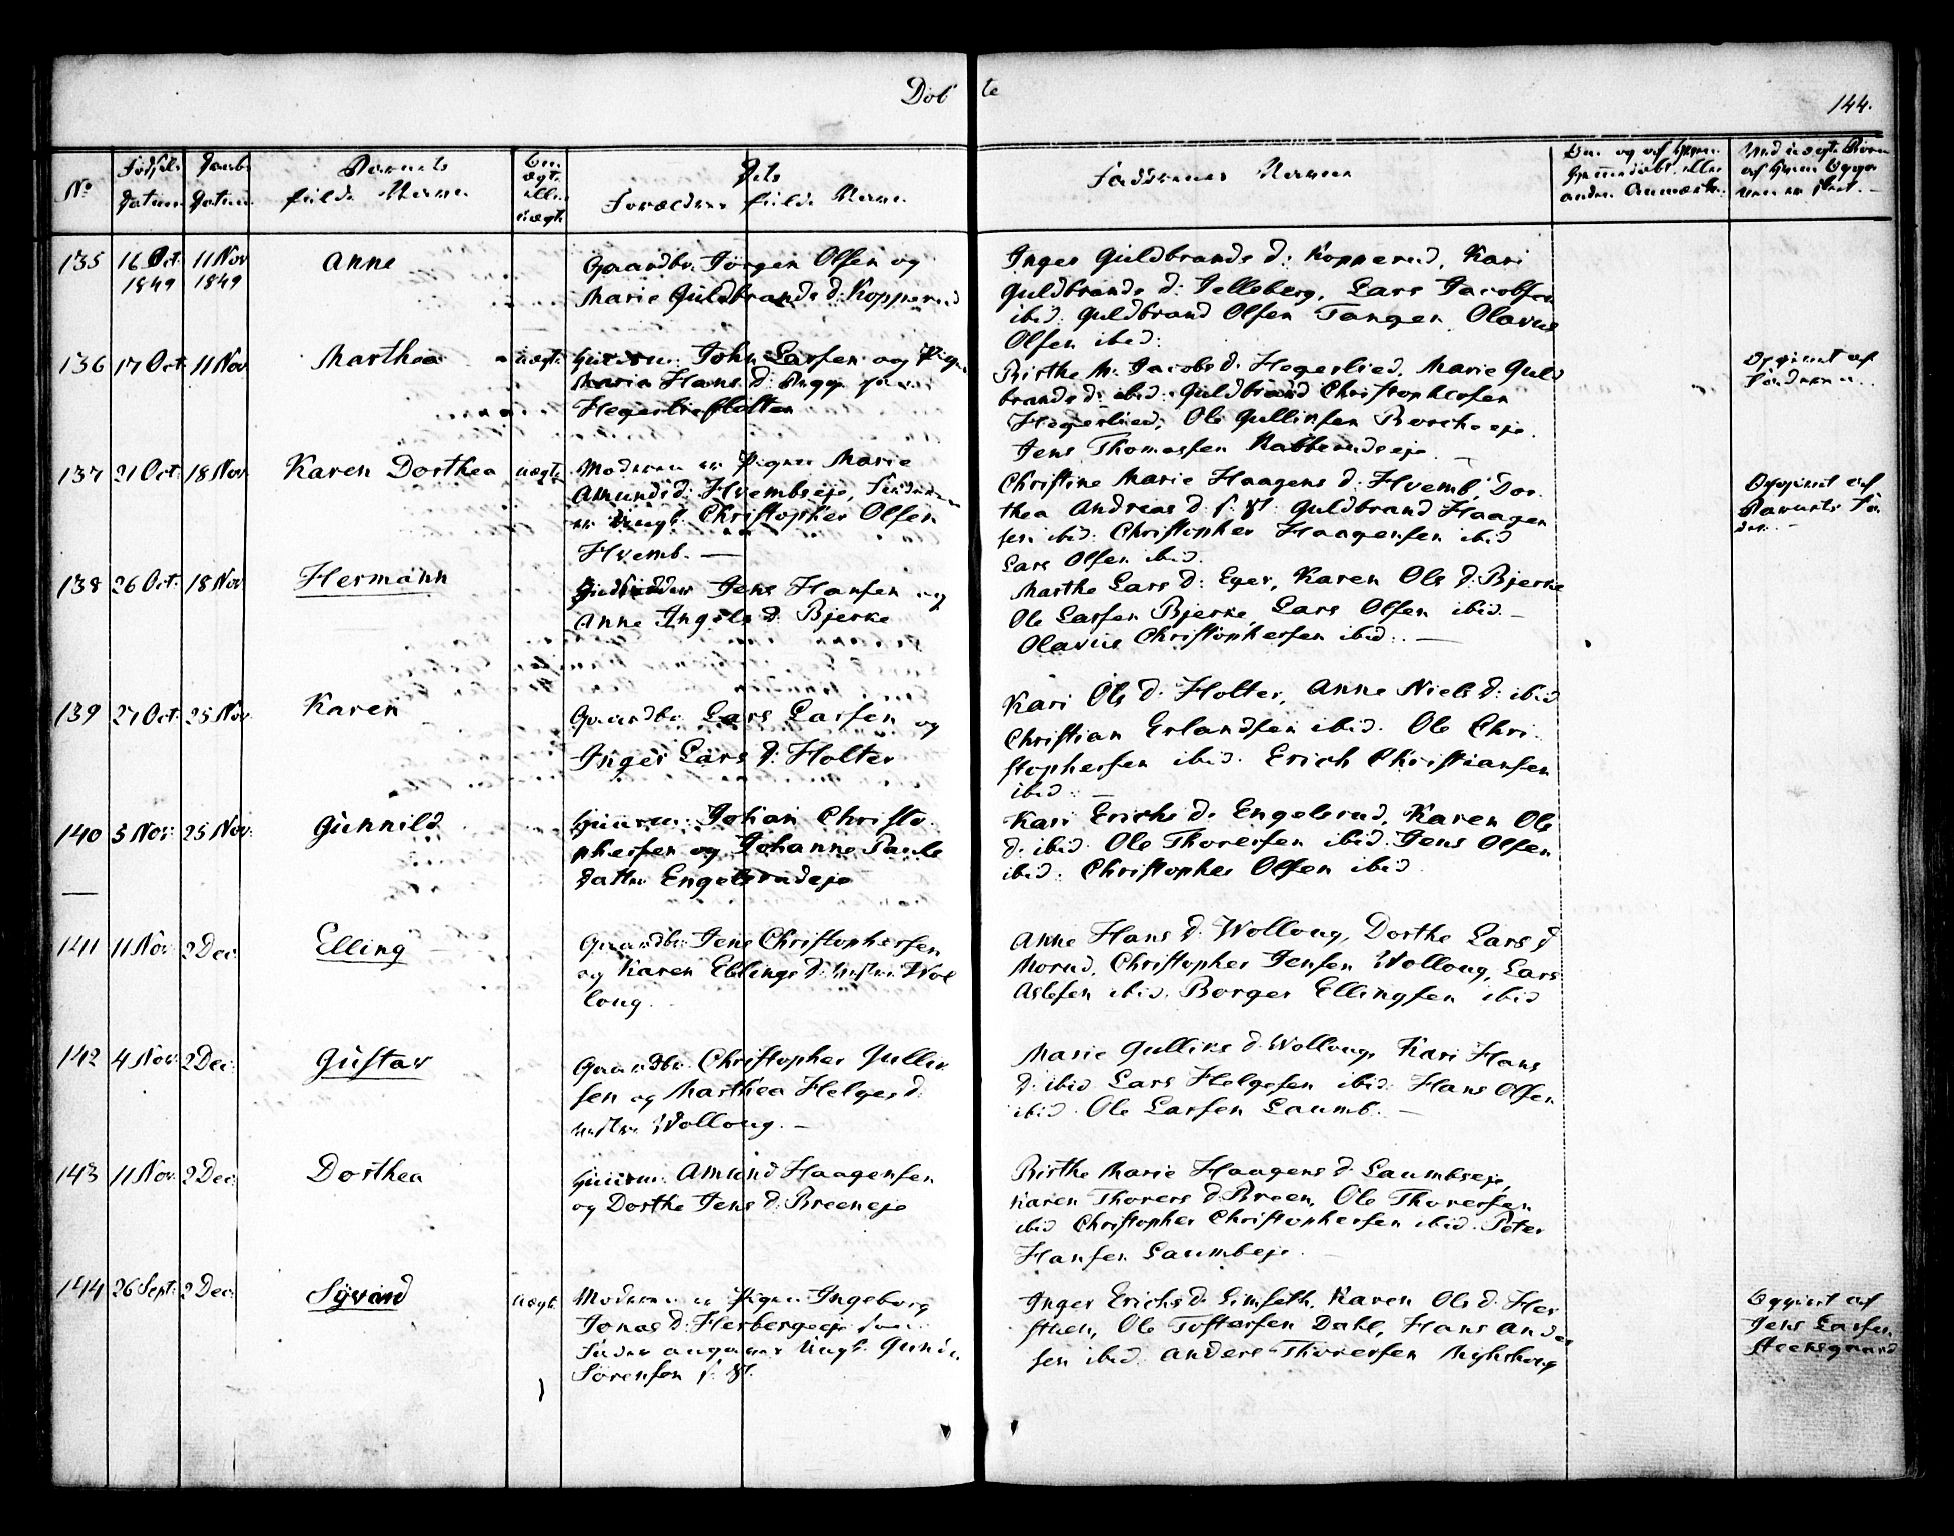 Döbte
144.
No
Fødsels Datum
Daabs Datum
Barnets
fulde Navn
Om
ægte
eller
uægte
Dets
Forældres fulde Navne
Faddernes Navne
andre Anmærkn.
135 16 Oct. 1849 11 Nov 1849 Anne
Gaardbr. Jørgen Olsen og
Marie Guldbrands d: Kopperud
Inger Guldbrands d: Kopperud, Kari
Guldbrands d: Jelleberg, Lars Jacobsen
ibid: Guldbrand Olsen Tangen Olavus
Olsen ibid:
136 17 Oct. 11 Nov Marthea uægte
Huusm. John Larsen og Pige
Maria Hans d:
Birthe M. Jacobs d: Hegerlied, Marie Guld
brands d: ibid: Guldbrand Christophersen
Hegerlied, Ole Gullixsen
Jens Thomassen
Opgivet af
Faderen
137 21 Oct. 18 Nov Karen Dorthea uægte
Moderen er Pigen Marie
Amunds d: Hvembseje, Faderen
er Ungk. Christopher Olsen
Hvemb. —
Christine Marie Haagens d: Hvemb, Dor
thea Andreas d: s: St: Guldbrand Haagen
sen ibid: Christopher Haagensen ibid
Lars Olsen ibid.
Opgivet af
Barnets Fa
der. —
138 26 Oct. 18 Nov Hermann
Jens Hansen og
Anne Ingels d: Bjerke
Marthe Lars d: Eger, Karen Ols d: Bjerke
Ole Larsen Bjerke, Lars Olsen ibid. —
Olavus Christophersen ibid: —
139 27 Oct. 25 Nov. Karen
Gaardbr. Lars Larsen og
Inger Lars d: Holter
Kari Ols d: Holter, Anne Niels d: ibid
Christian Erlandsen ibid. Ole Chri
stophersen ibid. Erich Christiansen
ibid: —
140 3 Nov. 25 Nov. Gunnild
Huusm. Johan Christo
phersen og Johanne Pauls
datter Engelsrudeje
Kari Erichs d: Engelsrud, Karen Ols
d: ibid Ole Thoresen ibid. Jens Olsen
ibid: Christopher Olsen ibid
141 11 Nov. 2 Dec. Elling
Gaardbr. Jens Christophersen
og Karen Ellings d: vestre Wol
loug.
Anne Hans d: Wolloug, Dorthe Lars d
Morud, Christopher Jensen Wolloug, Lars
Aslesen ibid. Borger Ellingsen ibid
142 4 Nov. 2 Dec. Gustav
Gaardbr. Christopher Gullik
sen og Marthea Helges d:
vestre Wolloug. —
Marie Gulliks d: Wolloug, Kari Hans
d: ibid Lars Helgesen ibid: Hans Olsen
ibid. Ole Larsen Laumb. —
143 11 Nov. 2 Dec. Dorthea
Huusm. Amund Haagensen
og Dorthe Jens d: Breeneje
Birthe Marie Haagens d: Laumbseje,
Karen Thores d: Breen, Ole Thoresen
ibid Christopher Christophersen ibid. Peter
Hansen Laumbeje. —
144 26 Sept. 2 Dec. Syvend uægte
Moderen er Pigen Ingeborg
Jonas d: Herbergseje som
Fader angives Ungk. Gunder
Sørensen s: St:
Inger Erichs d: Limseth, Karen Ols d: Her
Ole Tostersen Dahl, Hans Ander
sen ibid: Anders Thoresen
Opgivet af
Jens Larsen
Steensgaard